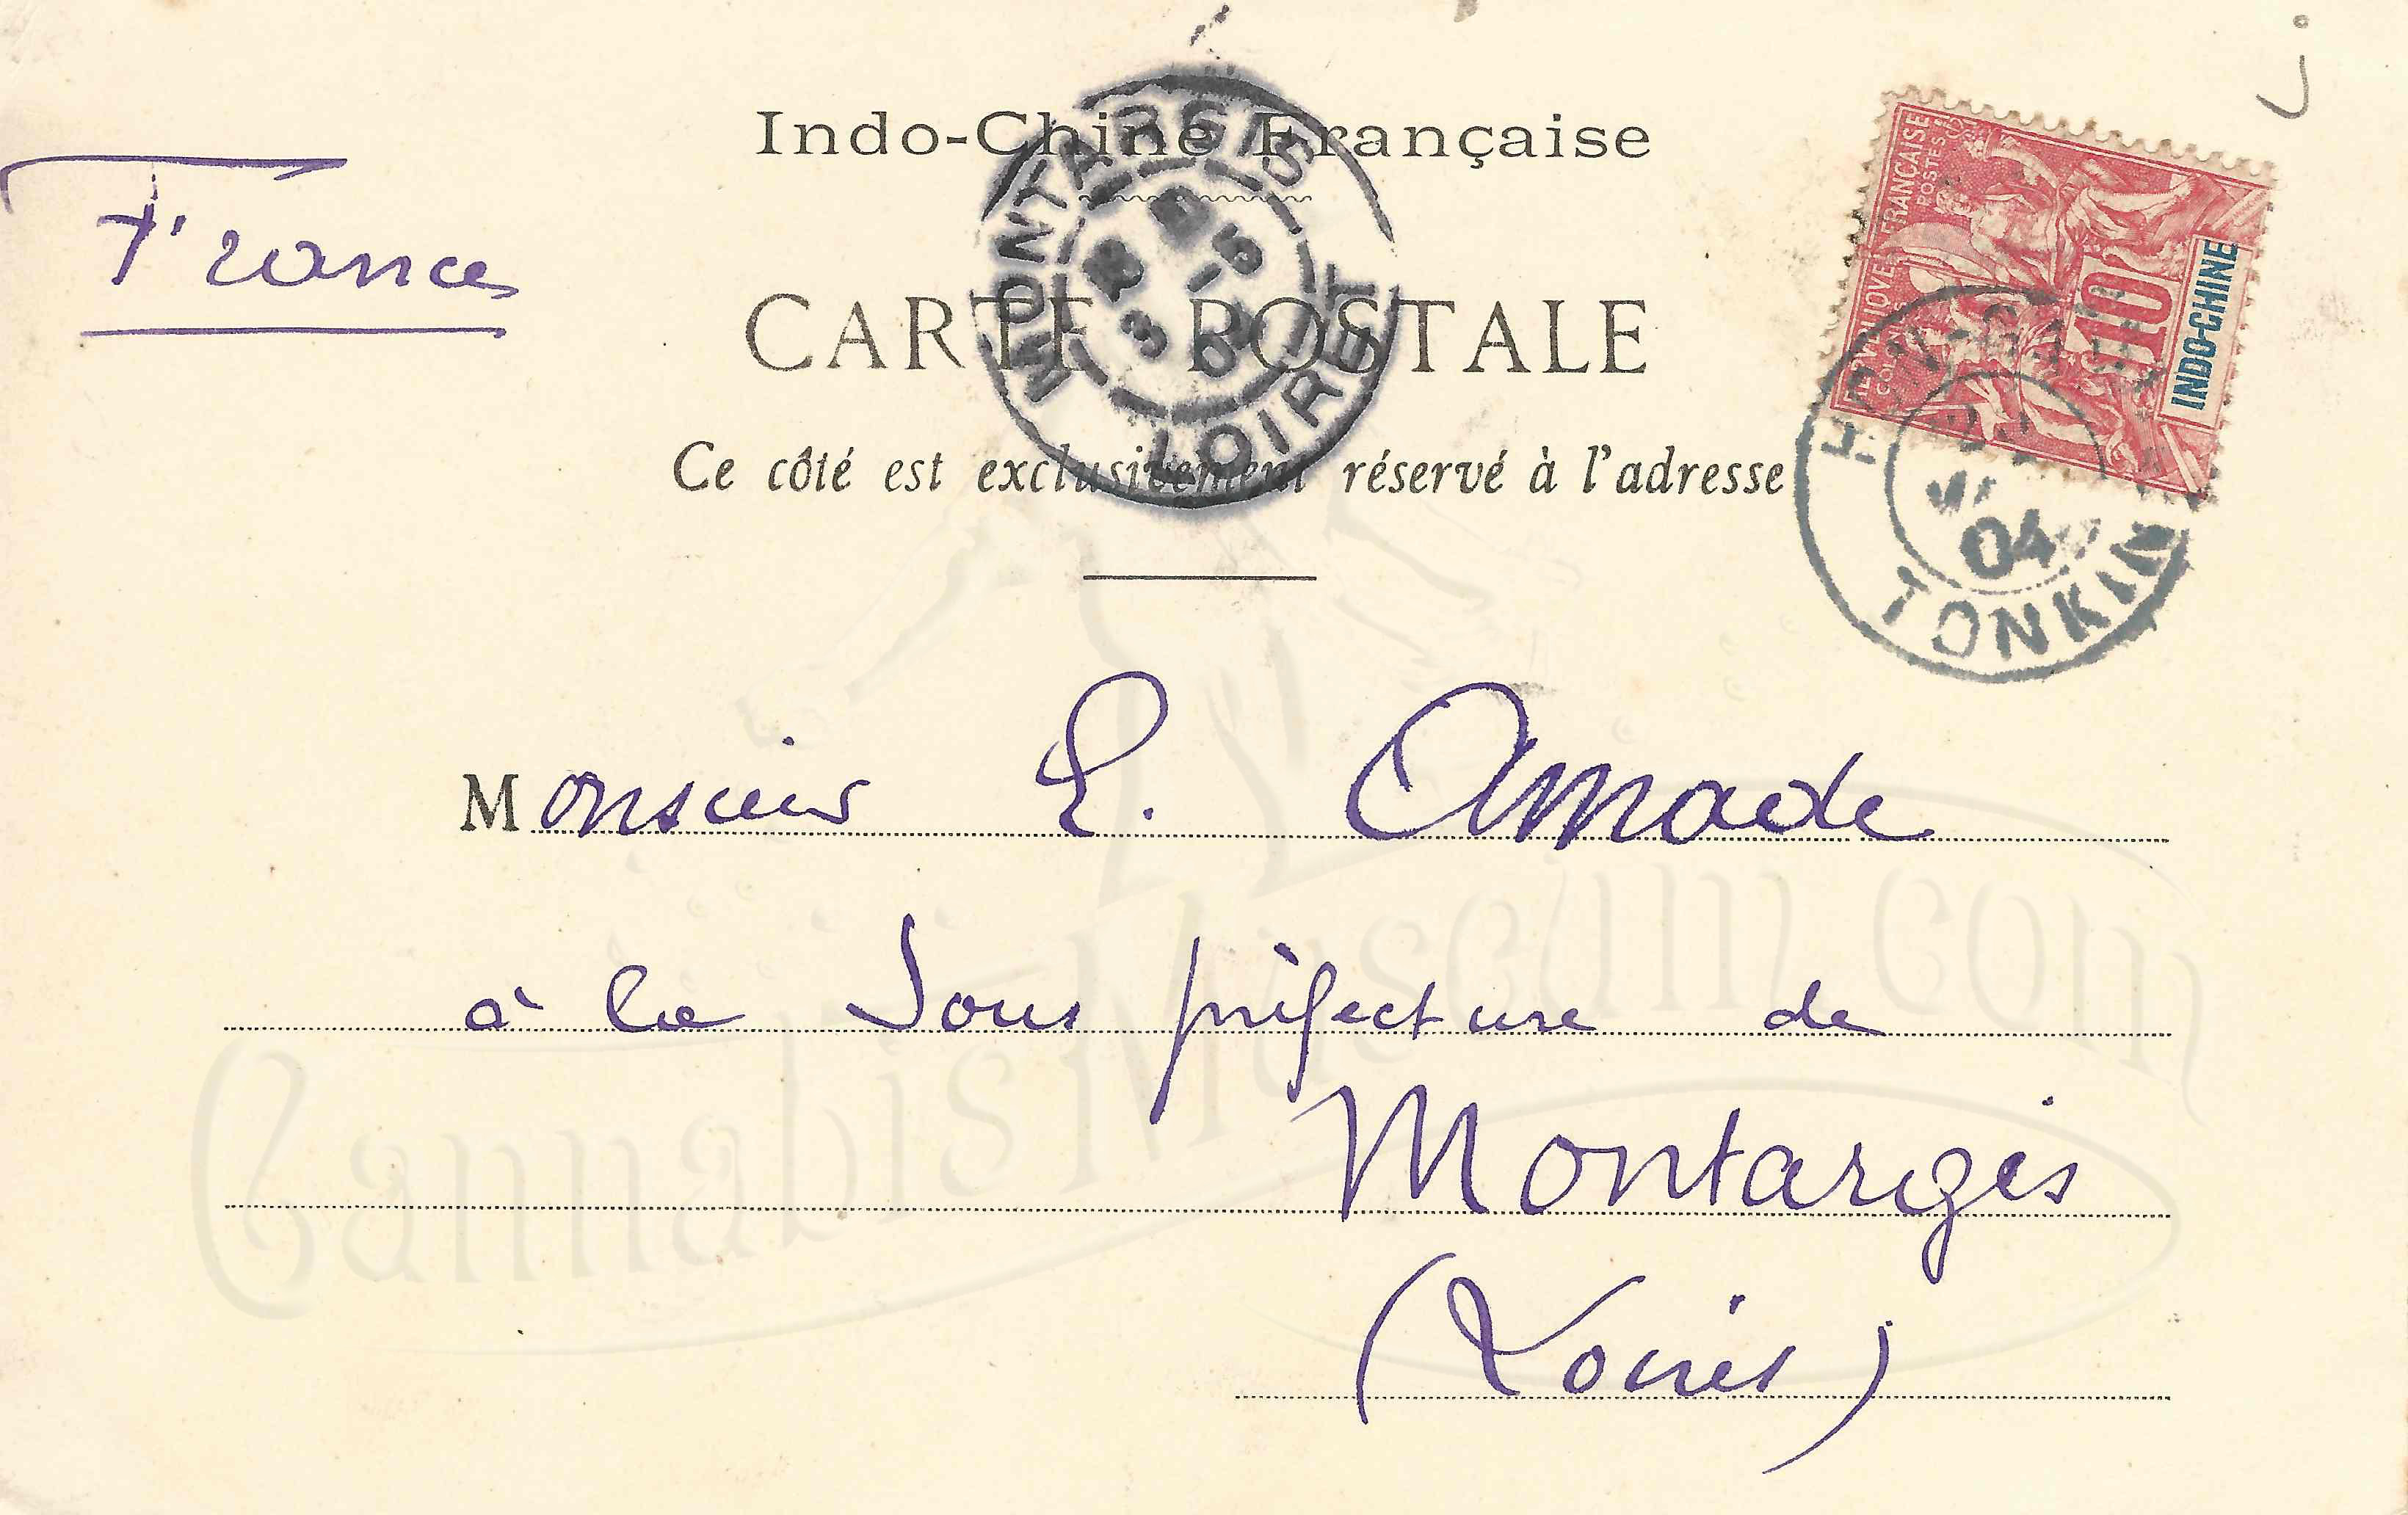 Indo-Chine Française
France
CARTE POSTALE
Ce côté est exclusivement réservé à l'adresse
MONTARGIS
3 -5 04
LOIRET
RÉPUBLIQUE FRANÇAISE
COLONIES POSTES
10
INDO-CHINE
04
TONKIN
Monsieur E. Amade
à la Sous préfecture de
Montargis
(Loiret)
CannabisMuseum.com